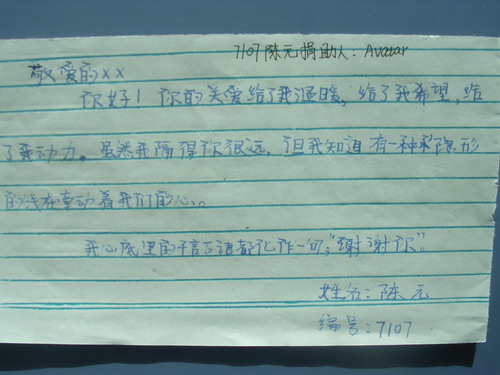 7107陈元捐助人：Avatar
敬爱的xx
你好！你的关爱给了我温暖，给了我希望，给
了我动力。虽然我隔得你很远，但我知道有一种隐形
的线在牵动着我们的心。
我心底里的千言万语都化作一句："谢谢你"。
姓名：陈元
编号：7107